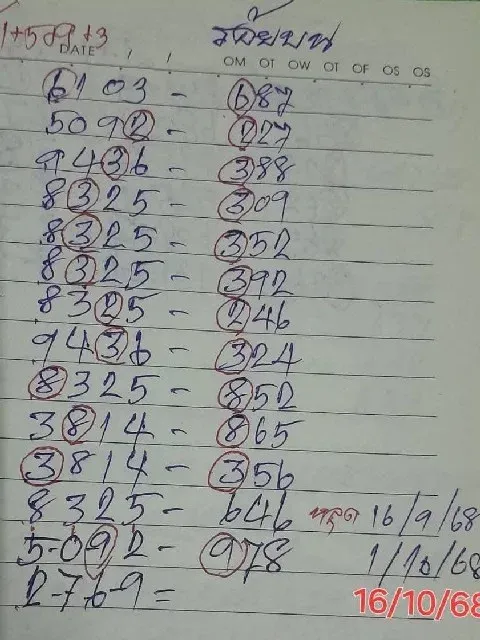 1+509+3 ร้อยบน
DATE / / OM OT OW OT OF OS OS
6103 - 687
5092 - 227
9436 - 388
8325 - 309
8325 - 352
8325 - 392
8325 - 246
9436 - 324
8325 - 852
3814 - 865
3814 - 356
8325 - 646 หลุด 16/9/68
5-092 - 978 1/10/68
2-769 = 16/10/68